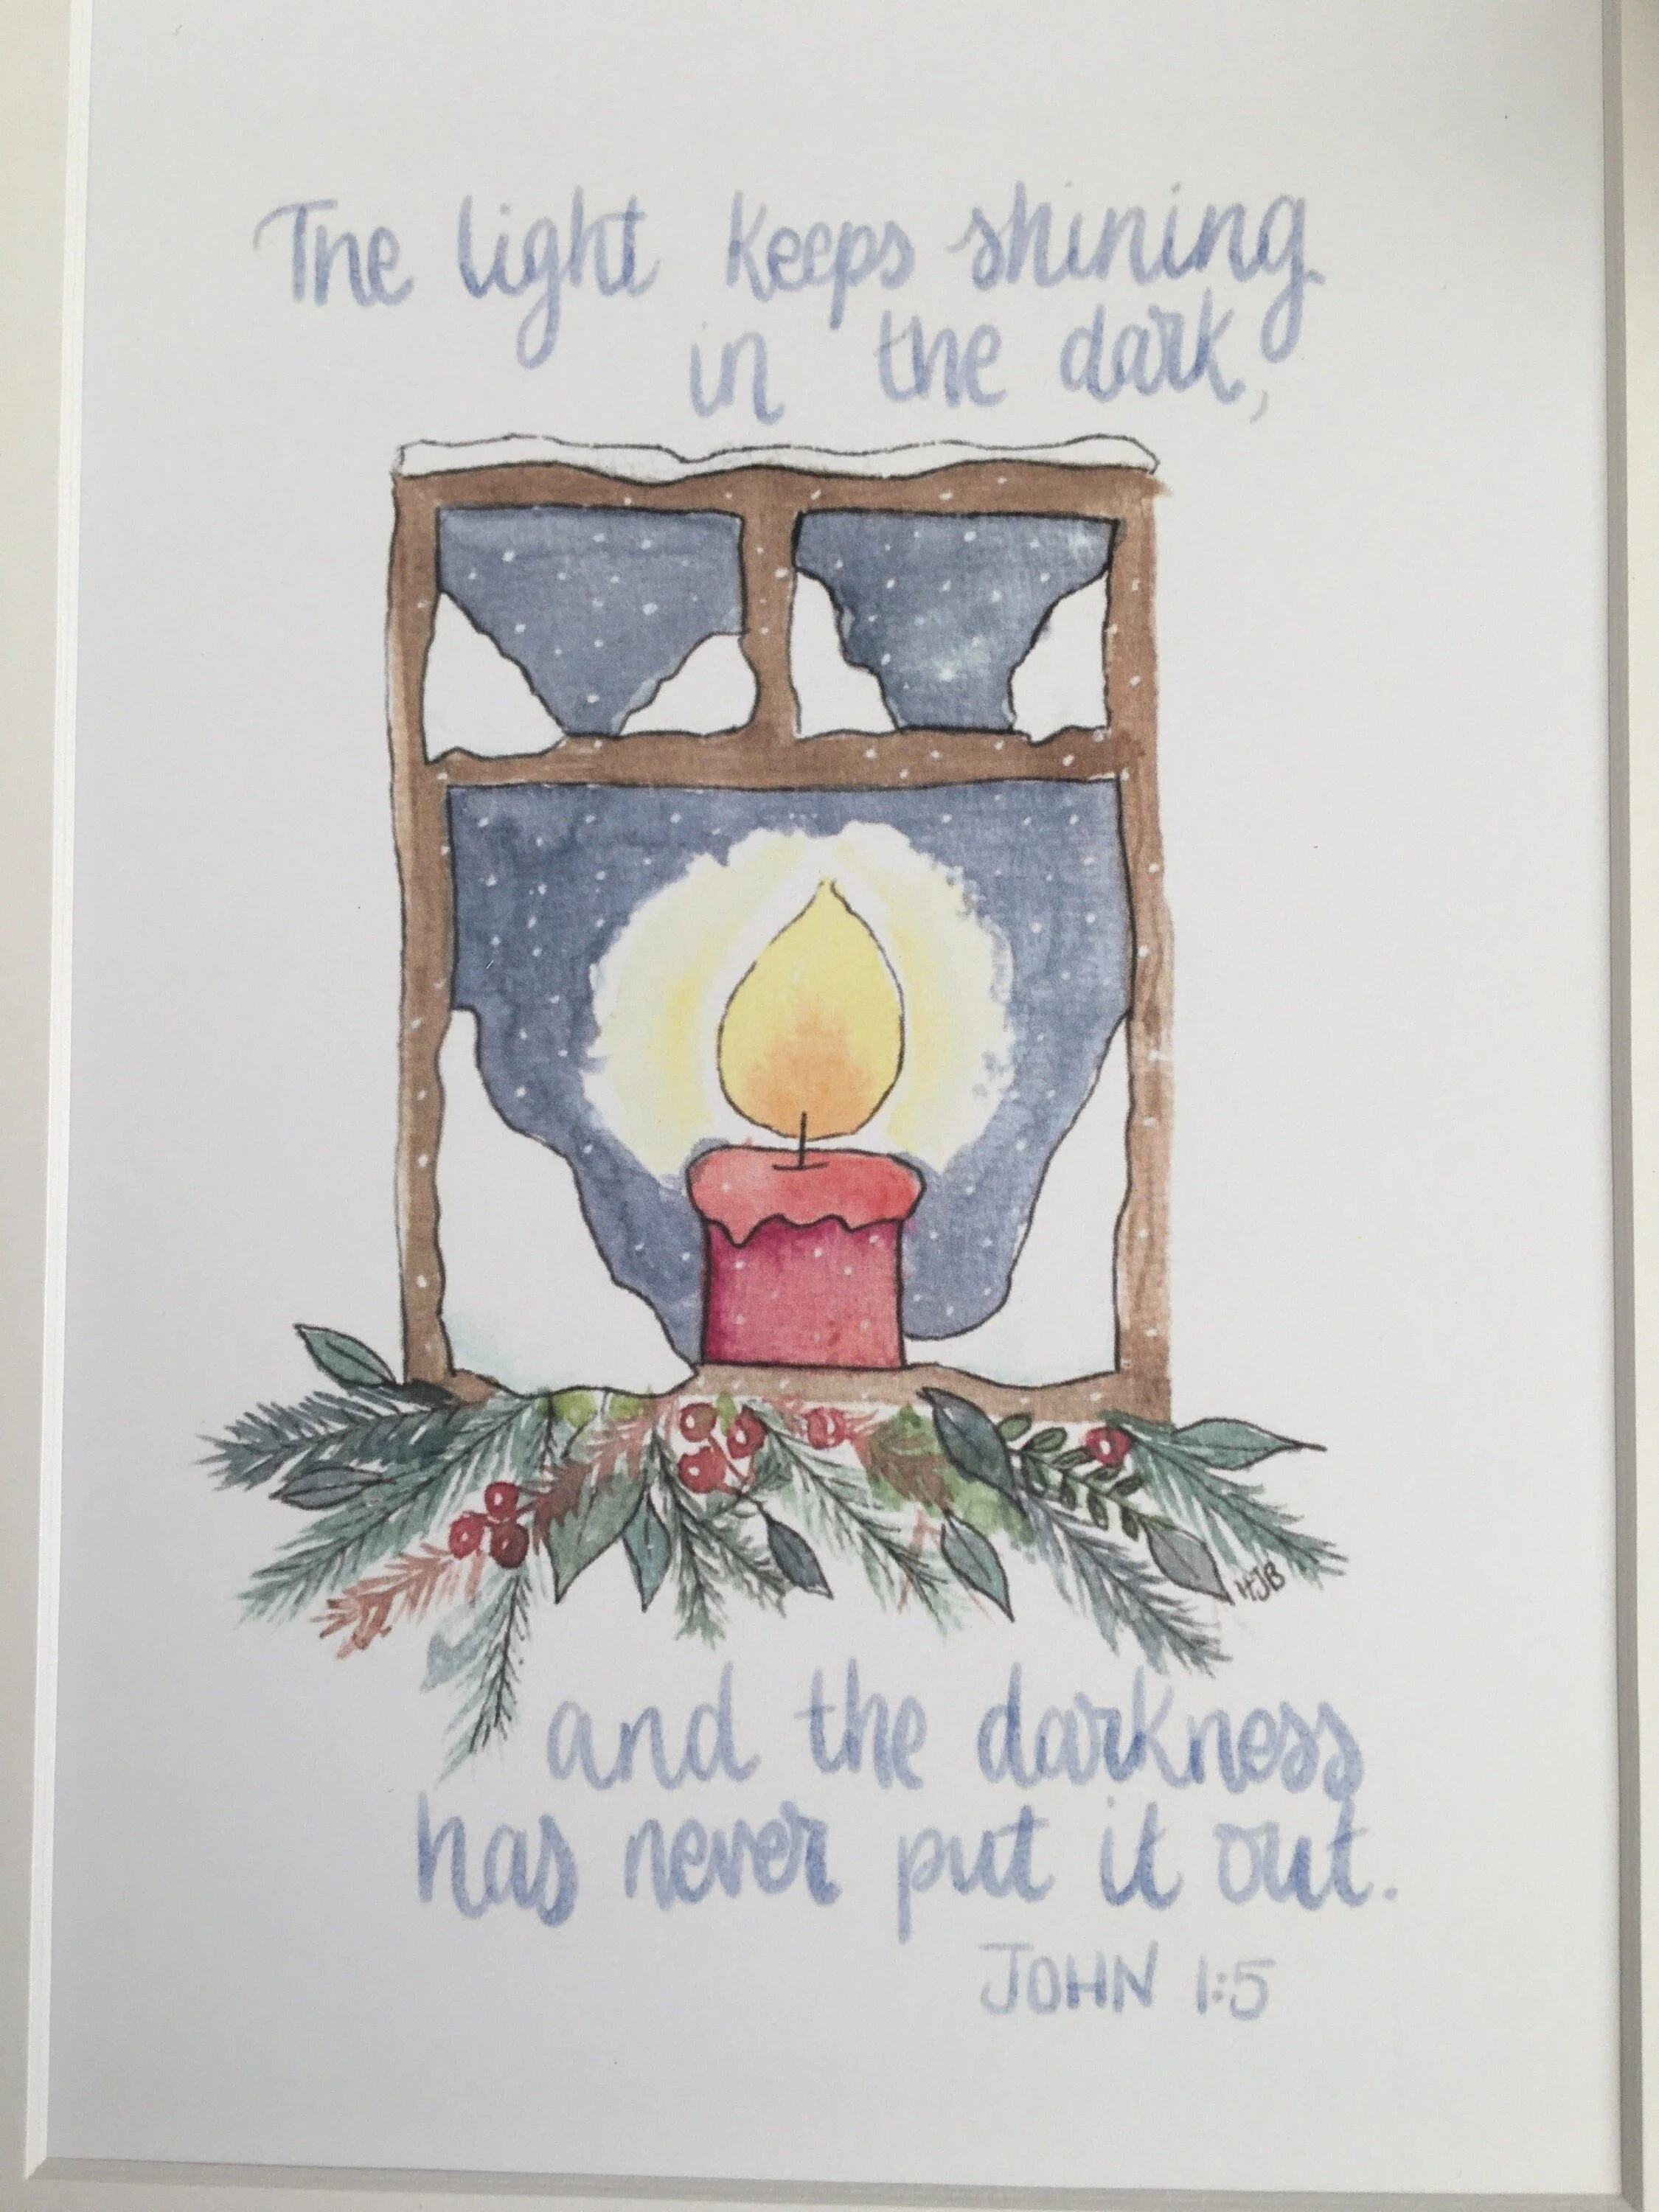 The light keeps shining
in the dark,
HJB
and the darkness
has never put it out.
JOHN 1:5